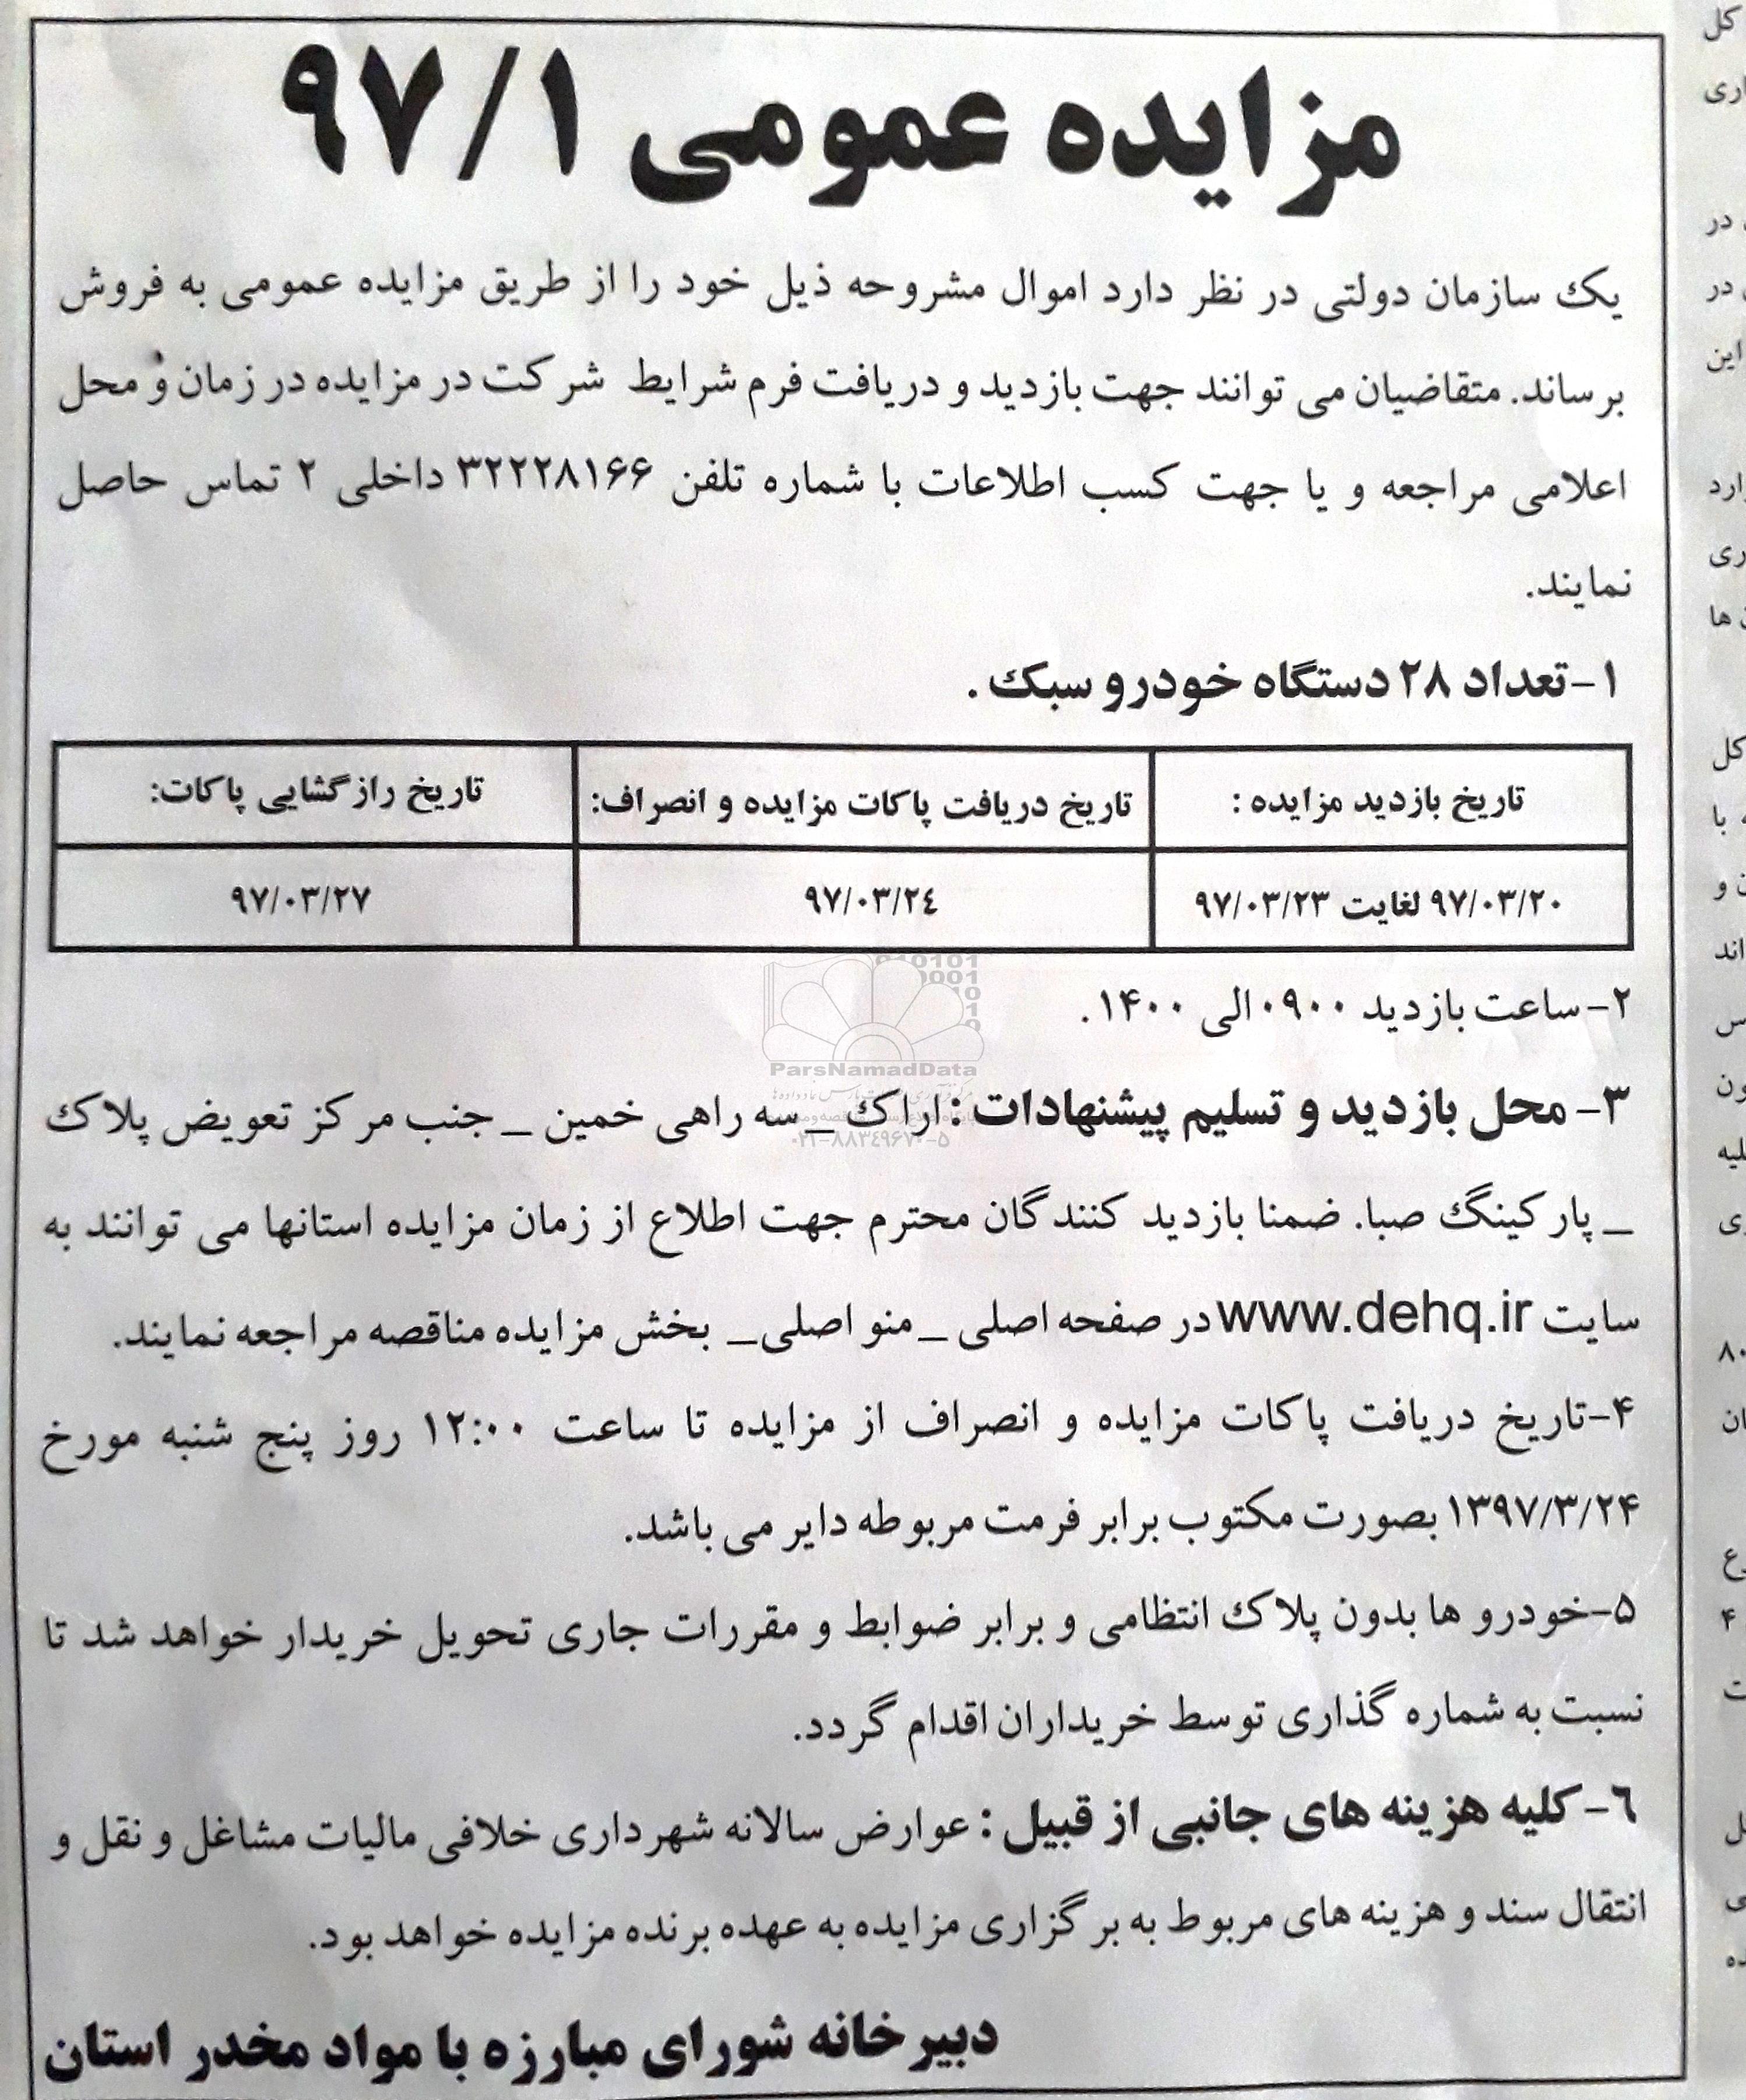 مزایده عمومی ۹۷/۱
یک سازمان دولتی در نظر دارد اموال مشروحه ذیل خود را از طریق مزایده عمومی به فروش
برساند. متقاضیان می توانند جهت بازدید و دریافت فرم شرایط شرکت در مزایده در زمان و محل
اعلامی مراجعه و یا جهت کسب اطلاعات با شماره تلفن ۳۲۲۲۸۱۶۶ داخلی ۲ تماس حاصل
نمایند.
۱-تعداد ۲۸ دستگاه خودرو سبک .
تاریخ بازدید مزایده : تاریخ دریافت پاکات مزایده و انصراف: تاریخ رازگشایی پاکات:
۹۷/۰۳/۲۰ لغایت ۹۷/۰۳/۲۳ ۹۷/۰۳/۲٤ ۹۷/۰۳/۲۷
۲-ساعت بازدید ۰۹۰۰ الی ۱۴۰۰ .
۳- محل بازدید و تسلیم پیشنهادات : اراک _ سه راهی خمین _ جنب مرکز تعویض پلاک
_ پارکینگ صبا. ضمنا بازدید کنندگان محترم جهت اطلاع از زمان مزایده استانها می توانند به
سایت www.dehq.ir در صفحه اصلی _ منو اصلی _ بخش مزایده مناقصه مراجعه نمایند.
۴-تاریخ دریافت پاکات مزایده و انصراف از مزایده تا ساعت ۱۲:۰۰ روز پنج شنبه مورخ
۱۳۹۷/۳/۲۴ بصورت مکتوب برابر فرمت مربوطه دایر می باشد.
۵-خودرو ها بدون پلاک انتظامی و برابر ضوابط و مقررات جاری تحویل خریدار خواهد شد تا
نسبت به شماره گذاری توسط خریداران اقدام گردد.
٦-کلیه هزینه های جانبی از قبیل : عوارض سالانه شهرداری خلافی مالیات مشاغل و نقل و
انتقال سند و هزینه های مربوط به برگزاری مزایده به عهده برنده مزایده خواهد بود.
دبیرخانه شورای مبارزه با مواد مخدر استان
ParsNamadData
۰۲۱-۸۸۳٤۹۶۷۰-۵